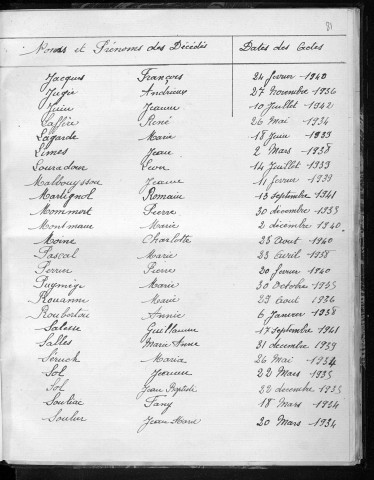 81
Noms et Prénoms des Décédés Dates des Actes
Jacques François 24 février 1940
Jugie Andrieux 27 Novembre 1936
Juin Jeanne 10 Juillet 1942
Laffée René 26 Mai 1934
Lagarde Marie 18 Juin 1933
Limes Jean 2 Mars 1938
Louradour Léon 14 Juillet 1939
Malbouyssou Jeanne 11 février 1939
Martignol Romain 13 septembre 1941
Mommert Pierre 30 décembre 1933
Montmaur Marie 2 décembre 1940
Moine Charlotte 28 Aout 1940
Pascal Marie 23 Avril 1938
Perrier Pierre 20 février 1940
Puymège Marie 30 Octobre
Rouanne Marie 29 Aout 1936
Roubertou Annie 6 Janvier 1938
Salesse Guillaume 17 septembre 1941
Salles Marie Anne 31 décembre 1939
Séruck Maria 26 Mai 1934
Sol Jeanne 22 Mars 1933
Sol Jean Baptiste 22 décembre 1933
Souliac Fany 18 Mars 1934
Soulier Jean Marie 20 Mars 1934